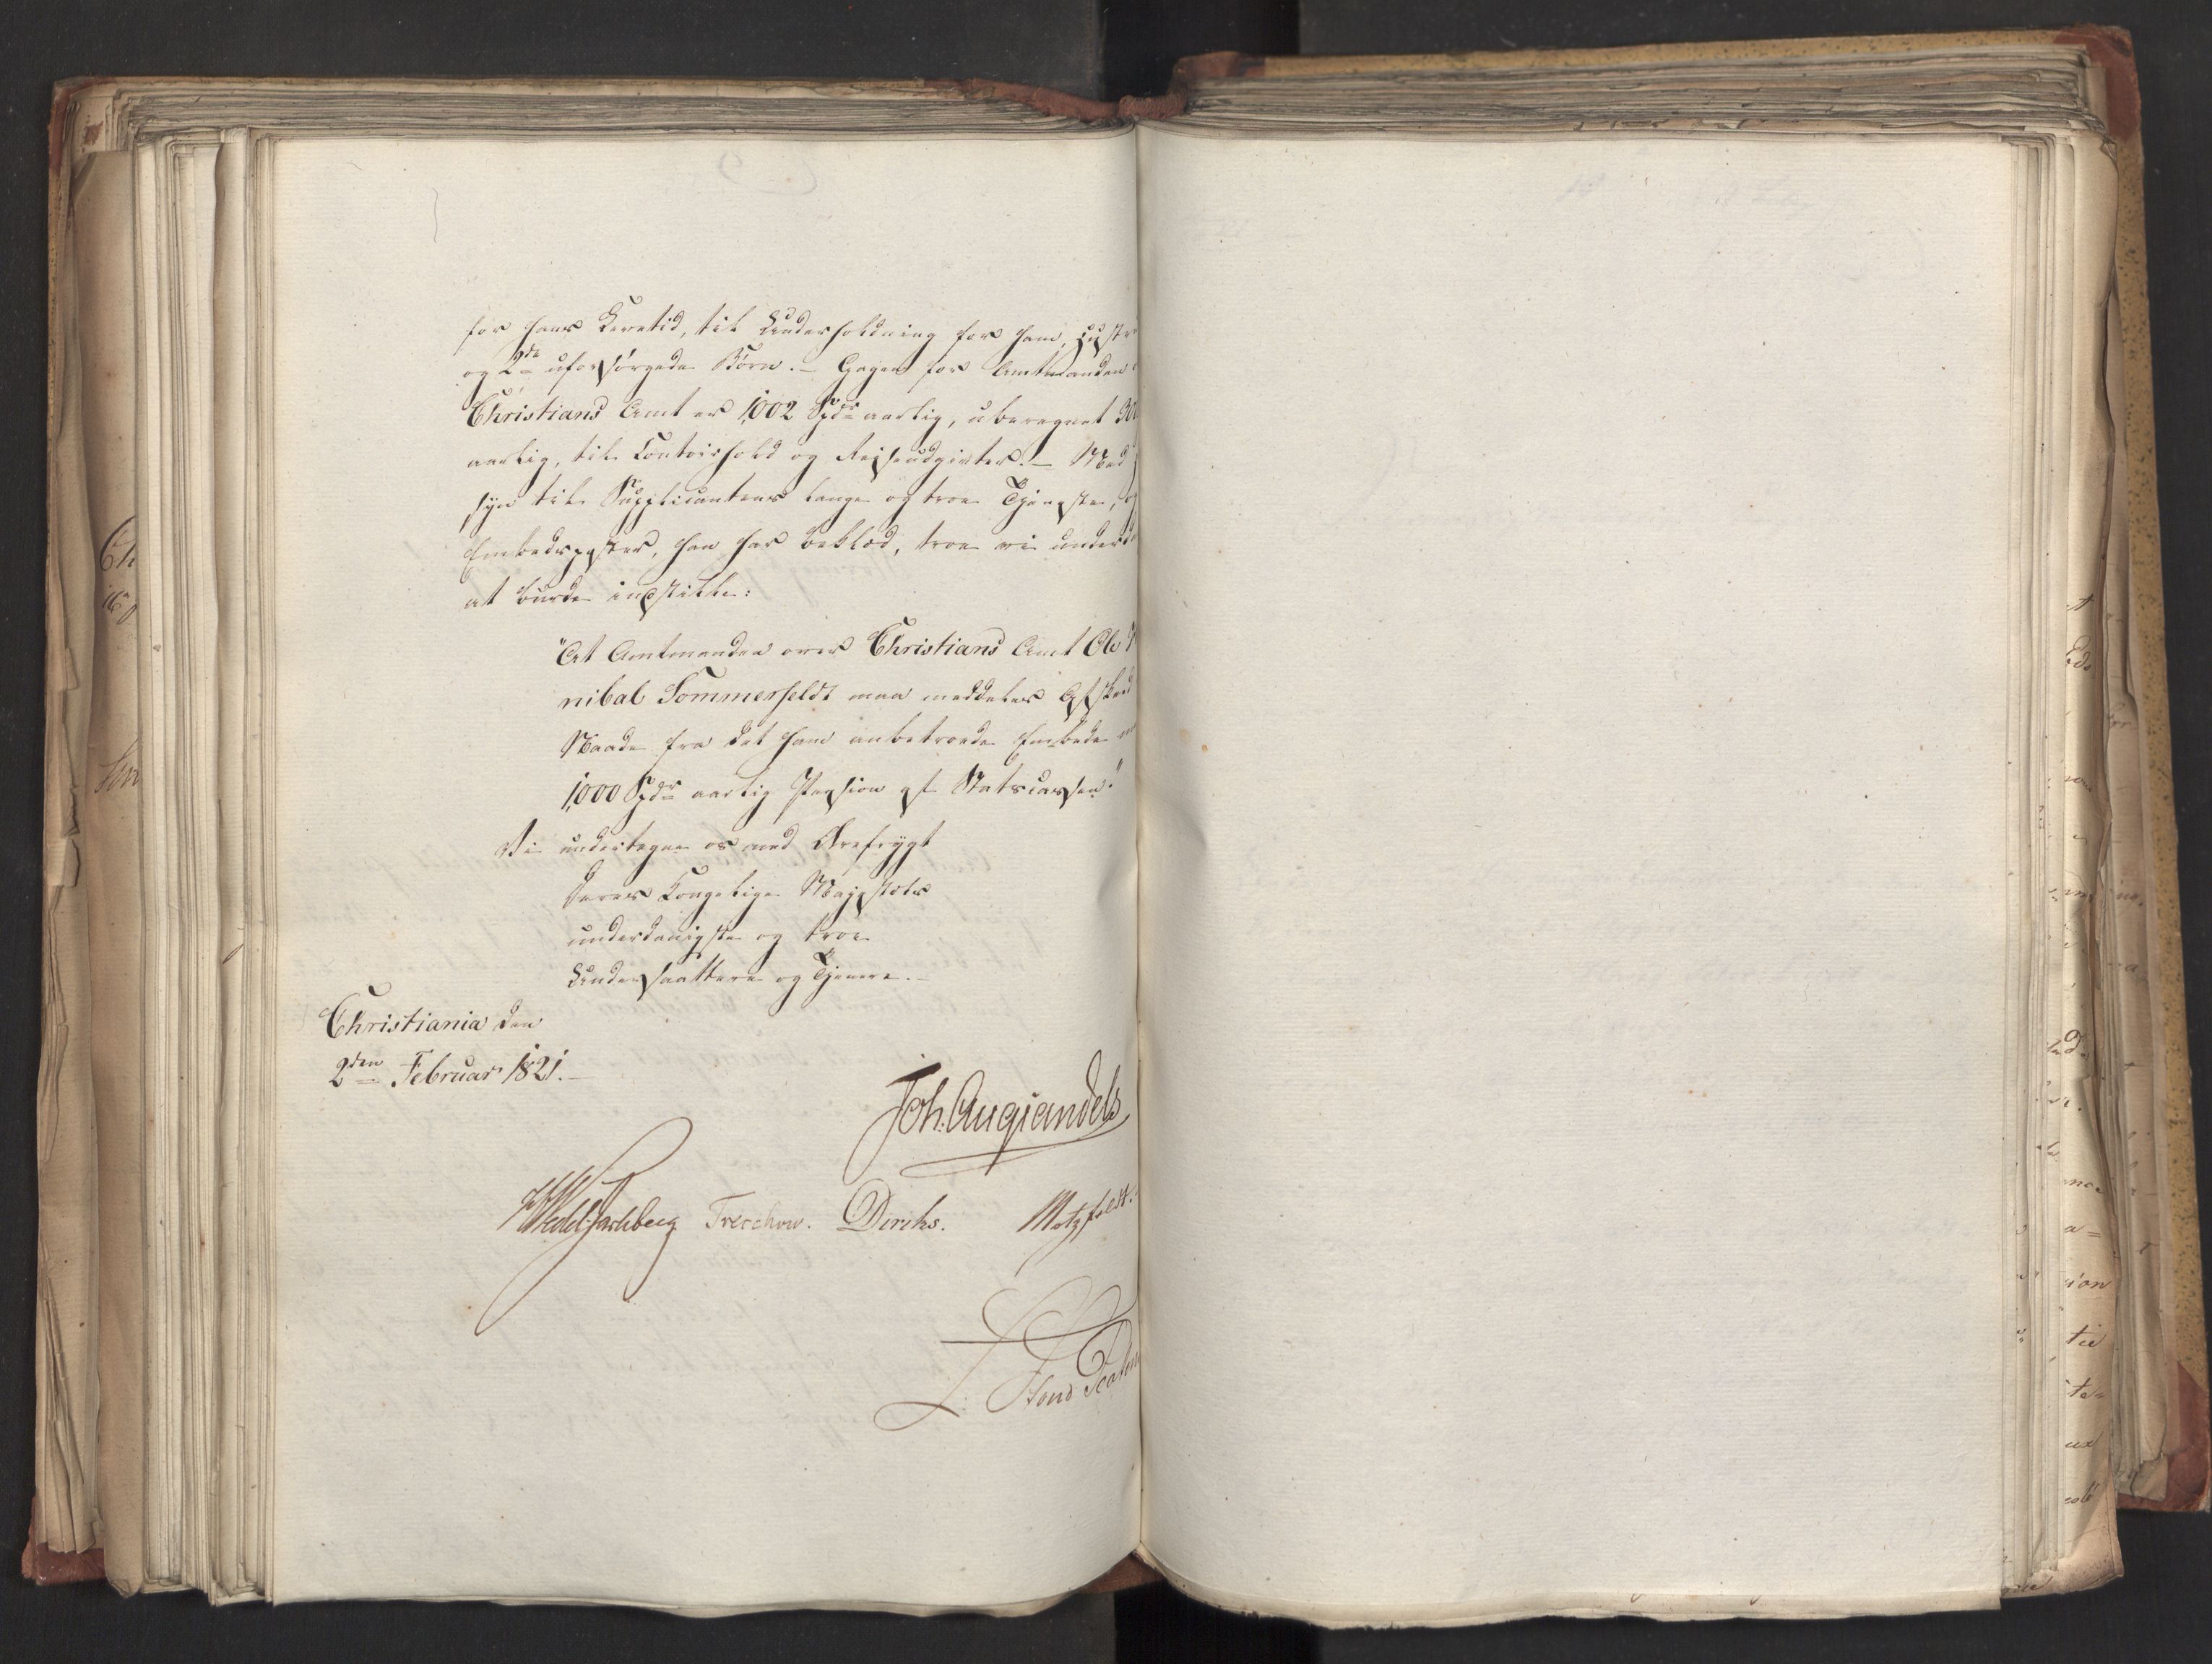 for hans Levetid, til Underholdning for ham, Hustr
og 2de uforsørgede Børn. – Gagen for Amtmanden
Christians Amt er 1,002 Spdr aarlig, uberegnet 300
aarlig, til Contoirhold og Reiseudgivter. – Med
syn til Supplicantens lange og troe Tjeneste, og
Embedsposter, han har beklæd, troe vi underd
at burde indstille:
"At Amtmanden over Christians Amt Ole H
nibal Sommerfeldt maa meddeles Afskeed
Naade fra det ham anbetroede Embede m
1,000 Spdr aarlig Pension af Statscassen."
Vi undertegne os med Ærefrygt
Deres Kongelige Majestæts
underdanigste og troe
Undersaattere og Tjenere. –
Christiania den
2den Februar 1821. –
Joh: Aug: Sandels
HWedelJarlsberg Treschow. Diriks. Motzfeldt.